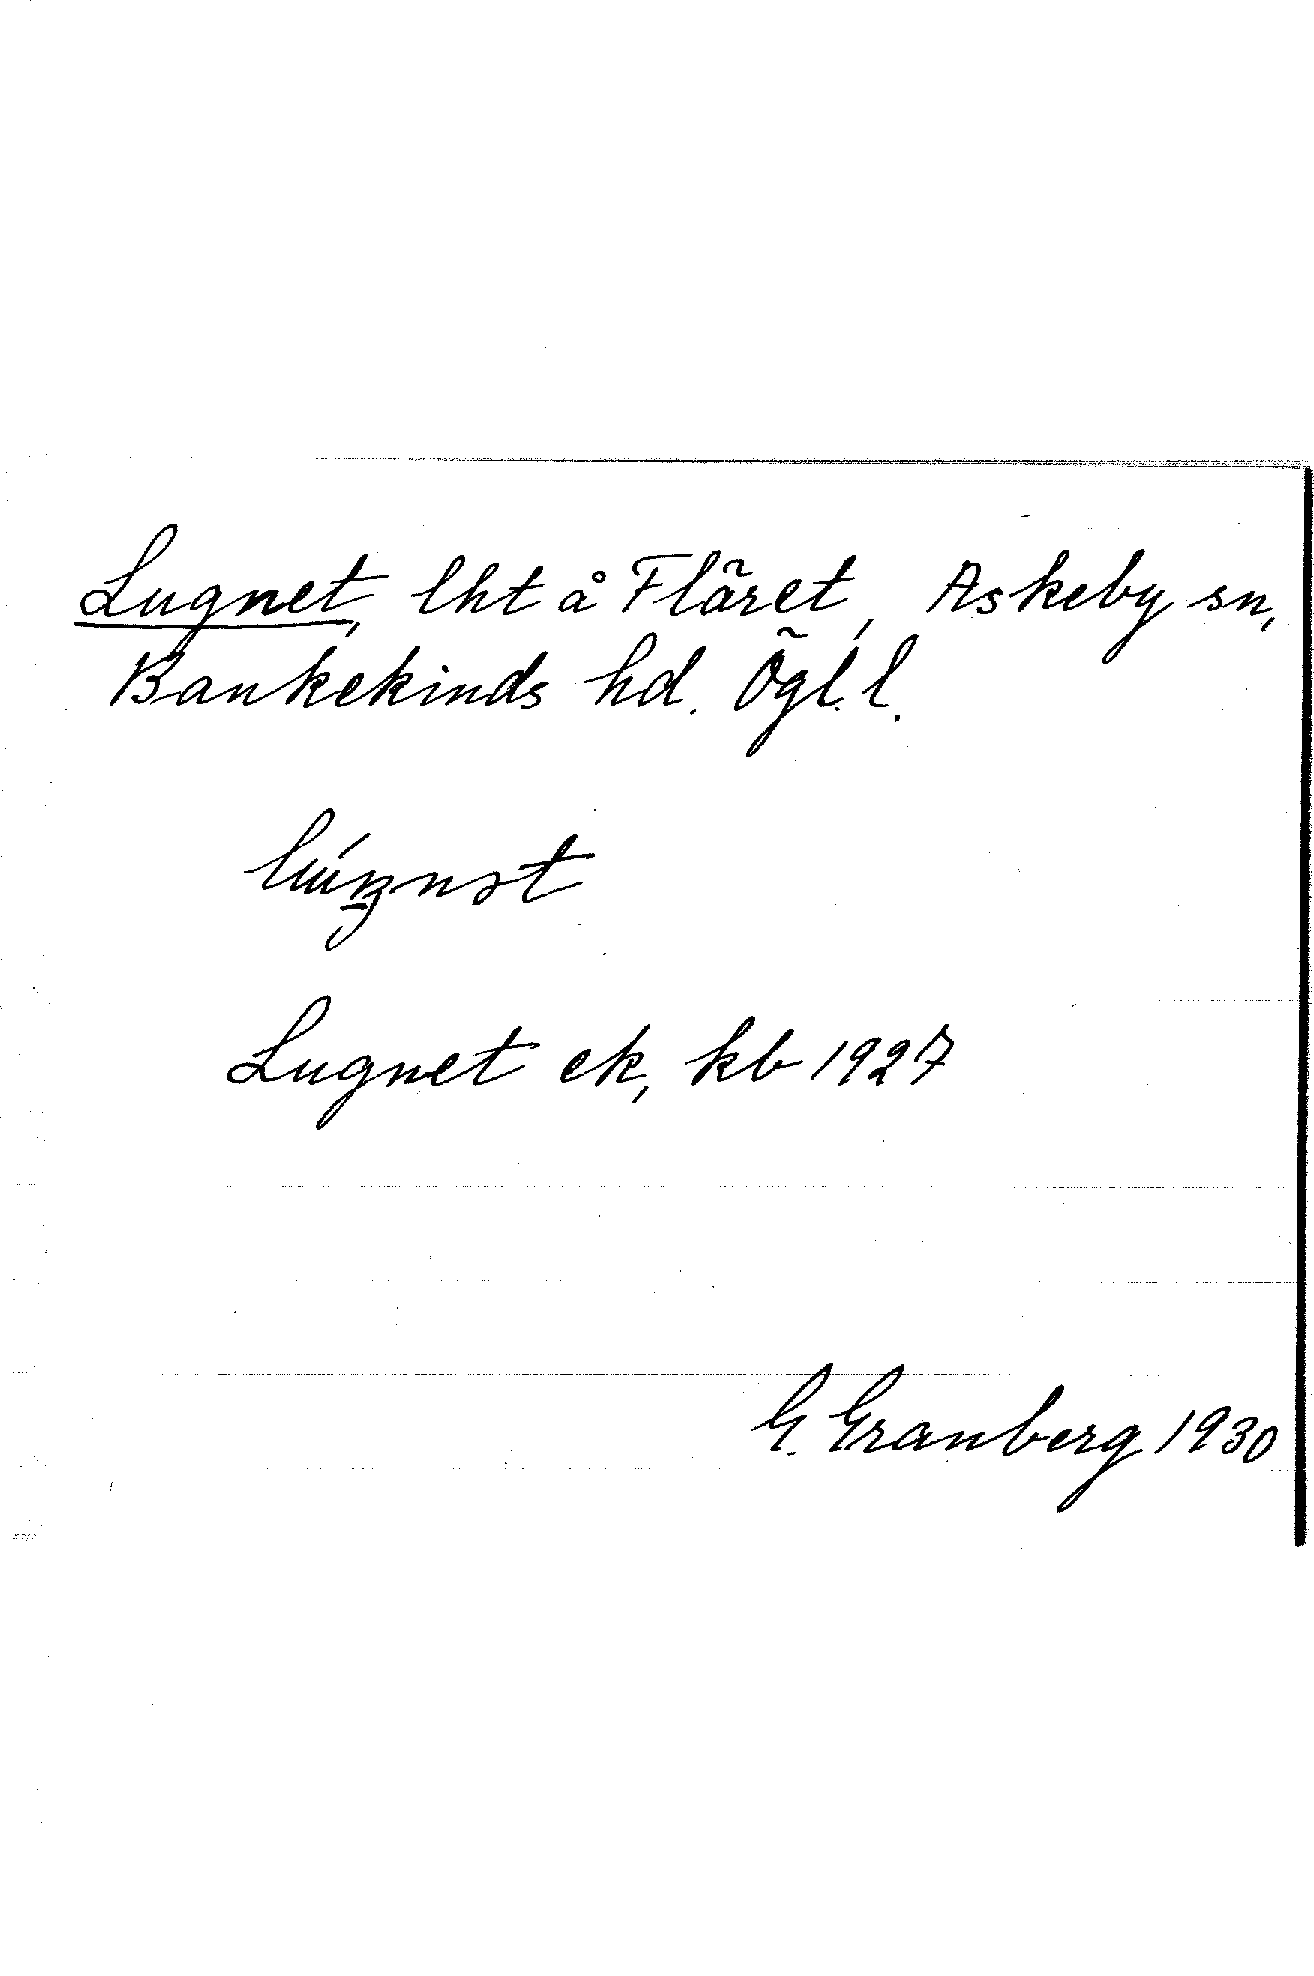 Lugnet, lht å Fläret, Askeby sn,
Bankekinds hd. Ögl. l.
Lugnet ek, kb 1927
G. Granberg 1930